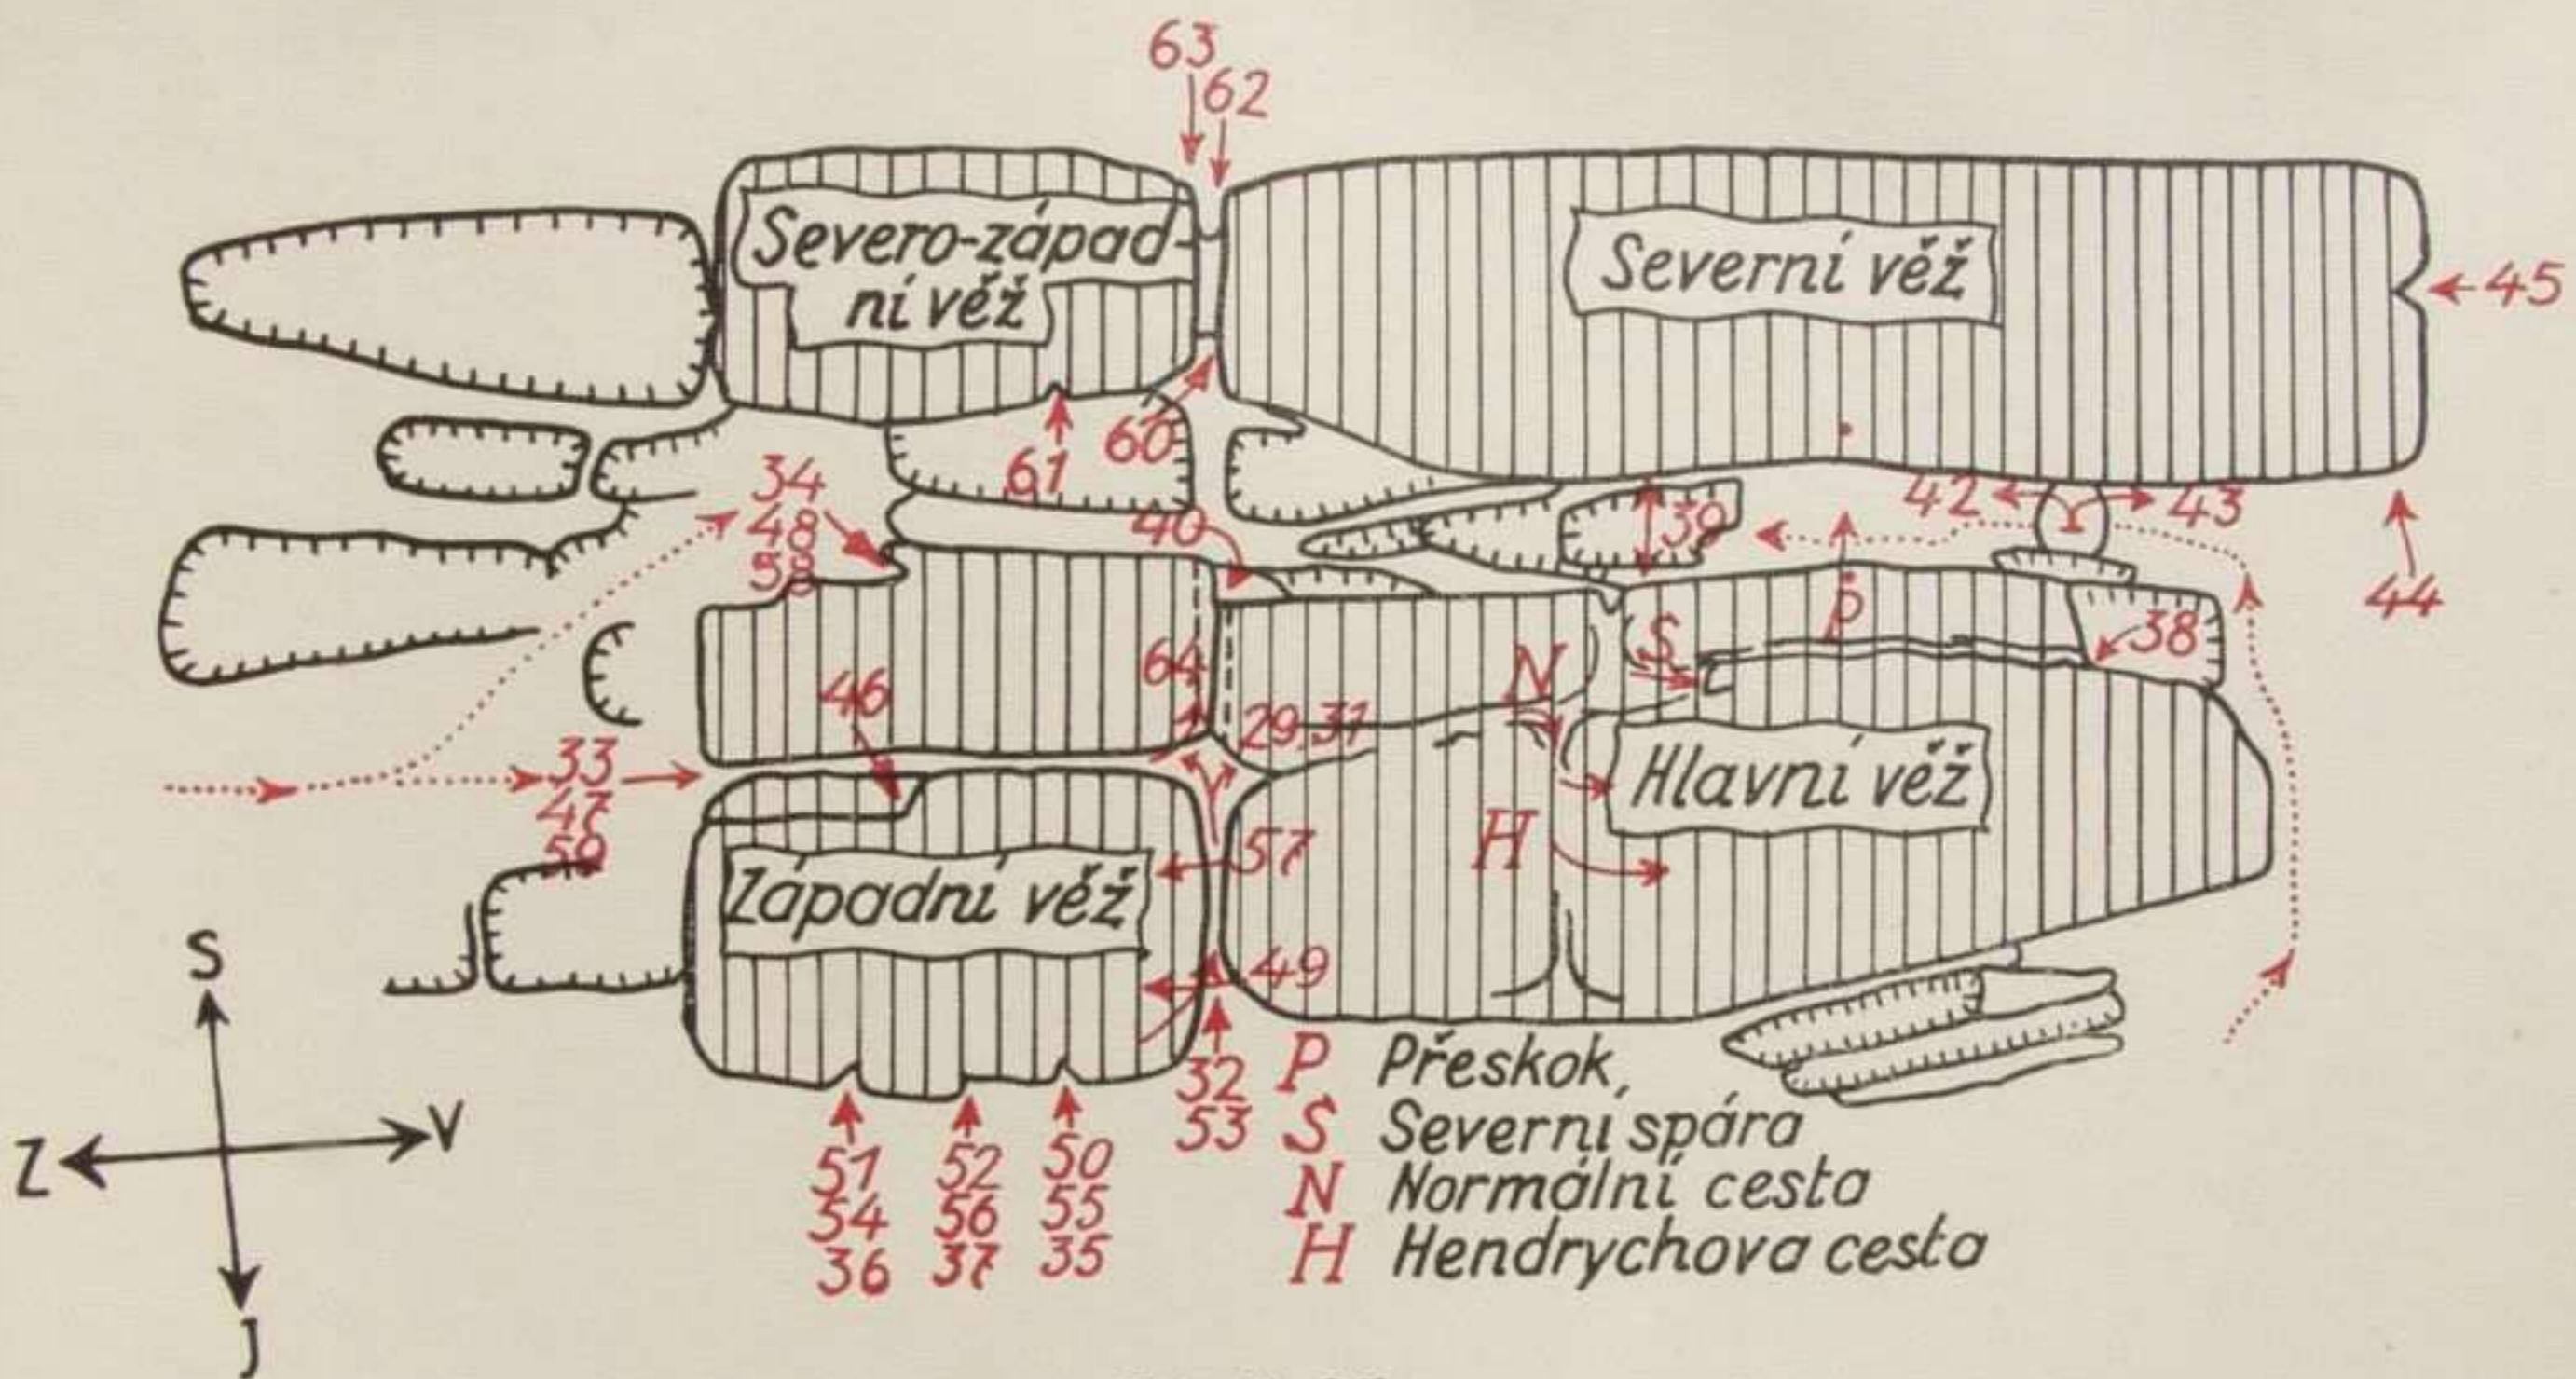 63
62
Severo-západ-
ní věž
Severní věž
45
34
48
58
61
60
40
39
42
43
44
P
S
38
N
64
46
29,31
33
47
59
Hlavní věž
H
57
Západní věž
49
S
Z
V
J
32
53
51
54
36
52
56
37
50
55
35
P Přeskok,
S Severní spára
N Normální cesta
H Hendrychova cesta